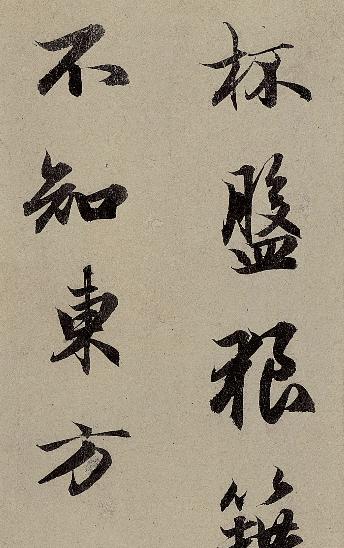 杯盤狼籍
不知東方